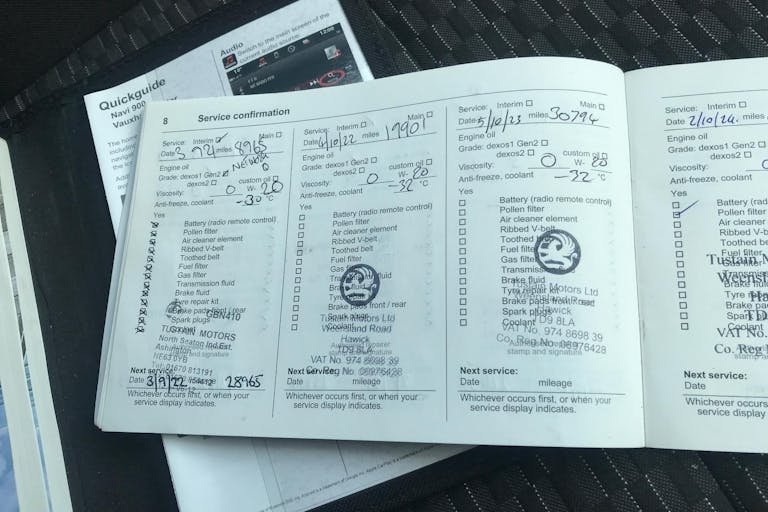 Quickguide
Navi 900
Vauxha
Audio
Switch to the main screen of the
current audio source.
8
Service confirmation
Service: Interim Main
Date miles 8965
Engine oil
Grade: dexos1 Gen2
dexos2
custom oil
Viscosity: 0 W- 20
Anti-freeze, coolant -30 °C
Yes
Battery (radio remote control)
Pollen filter
Air cleaner element
Ribbed V-belt
Toothed belt
Fuel filter
Gas filter
Transmission fluid
Brake fluid
Tyre repair kit
Brake pads front / rear
Spark plugs
North Seaton Ind.Est.
01670 813191
Next service:
Date 3/9/22 28965
Whichever occurs first, or when your
service display indicates.
Service: Interim Main
Date 4/10/22 miles 19901
Engine oil
Grade: dexos1 Gen2
dexos2 custom oil
Viscosity: 0 W- 20
Anti-freeze, coolant -32 °C
Yes
Battery (radio remote control)
Pollen filter
Air cleaner element
Ribbed V-belt
Toothed belt
Fuel filter
Gas
Transmission
Brake fluid
Tyre repair kit
Brake pads front / rear
Spark plugs
Coolant
Motors Ltd
Weensland Road
Hawick
TD9 8LA
VAT No. 974 8698 39
Co. Reg No. 06976428
Next service:
Date mileage
Whichever occurs first, or when your
service display indicates.
Service: Interim Main
Date 5/10/23 miles 30794
Engine oil
Grade: dexos1 Gen2
dexos2 custom oil
Viscosity: 0 W- 20
Anti-freeze, coolant -32 °C
Yes
Battery (radio remote control)
Pollen filter
Air cleaner element
Ribbed V-belt
Toothed
Fuel filter
Gas
Transmission
Brake fluid
Tyre repair kit
Brake pads front / rear
Spark plugs
Coolant
Motors Ltd
Weensland Road
Hawick
TD9 8LA
VAT No. 974 8698 39
Co. Reg No. 06976428
stamp and signature
Next service:
Date mileage
Whichever occurs first, or when your
service display indicates.
Service: Interim
Date 2/10/24 miles
Engine oil
Grade: dexos1 Gen2
dexos2
Viscosity:
Anti-freeze, coolant
Yes
Battery (rad
Pollen filter
Air cleaner
Ribbed V-
Toothed be
Fuel filter
Tustain M
Weensl
Ha
TD
VAT No.
Co. Reg N
stamp and
Next service:
Date
Whichever occurs
service display